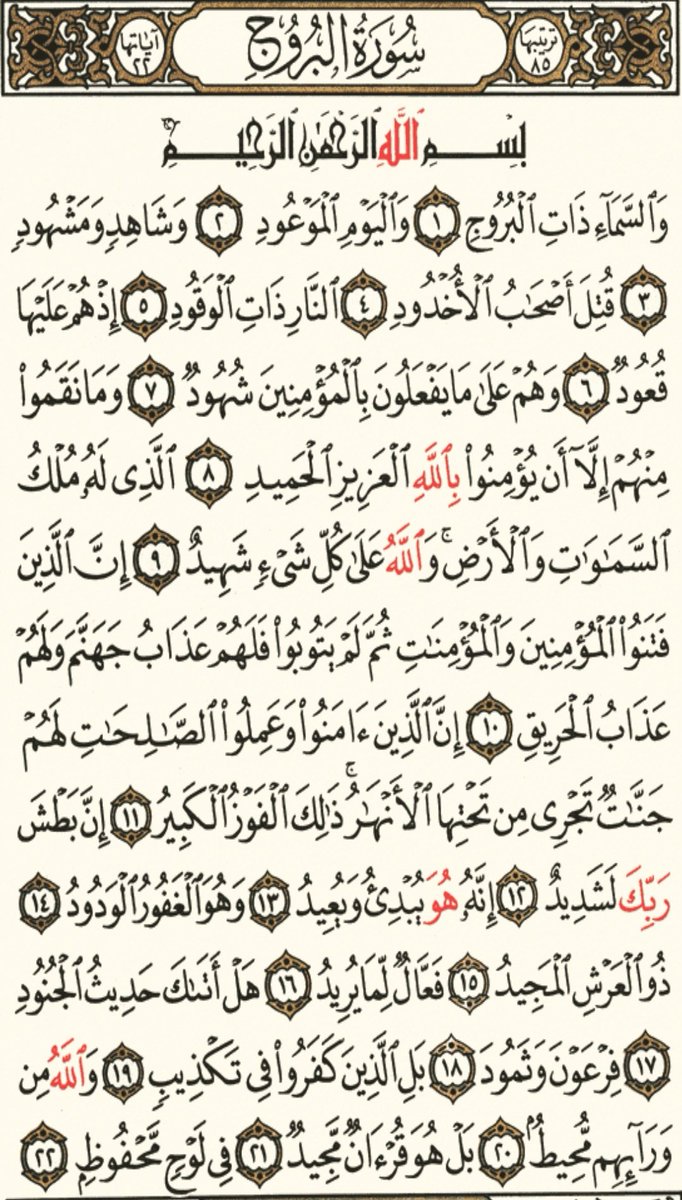 ترتيبها ٨٥ سُورَةُ الْبُرُوجِ آياتها ٢٢
بِسْمِ ٱللَّهِ ٱلرَّحْمَٰنِ ٱلرَّحِيمِ
وَٱلسَّمَآءِ ذَاتِ ٱلْبُرُوجِ ١ وَٱلْيَوْمِ ٱلْمَوْعُودِ ٢ وَشَاهِدٍ وَمَشْهُودٍ
٣ قُتِلَ أَصْحَٰبُ ٱلْأُخْدُودِ ٤ ٱلنَّارِ ذَاتِ ٱلْوَقُودِ ٥ إِذْ هُمْ عَلَيْهَا
قُعُودٌ ٦ وَهُمْ عَلَىٰ مَا يَفْعَلُونَ بِٱلْمُؤْمِنِينَ شُهُودٌ ٧ وَمَا نَقَمُوا۟
مِنْهُمْ إِلَّآ أَن يُؤْمِنُوا۟ بِٱللَّهِ ٱلْعَزِيزِ ٱلْحَمِيدِ ٨ ٱلَّذِى لَهُۥ مُلْكُ
ٱلسَّمَٰوَٰتِ وَٱلْأَرْضِ ۚ وَٱللَّهُ عَلَىٰ كُلِّ شَىْءٍ شَهِيدٌ ٩ إِنَّ ٱلَّذِينَ
فَتَنُوا۟ ٱلْمُؤْمِنِينَ وَٱلْمُؤْمِنَٰتِ ثُمَّ لَمْ يَتُوبُوا۟ فَلَهُمْ عَذَابُ جَهَنَّمَ وَلَهُمْ
عَذَابُ ٱلْحَرِيقِ ١٠ إِنَّ ٱلَّذِينَ ءَامَنُوا۟ وَعَمِلُوا۟ ٱلصَّٰلِحَٰتِ لَهُمْ
جَنَّٰتٌ تَجْرِى مِن تَحْتِهَا ٱلْأَنْهَٰرُ ۚ ذَٰلِكَ ٱلْفَوْزُ ٱلْكَبِيرُ ١١ إِنَّ بَطْشَ
رَبِّكَ لَشَدِيدٌ ١٢ إِنَّهُۥ هُوَ يُبْدِئُ وَيُعِيدُ ١٣ وَهُوَ ٱلْغَفُورُ ٱلْوَدُودُ ١٤
ذُو ٱلْعَرْشِ ٱلْمَجِيدُ ١٥ فَعَّالٌ لِّمَا يُرِيدُ ١٦ هَلْ أَتَىٰكَ حَدِيثُ ٱلْجُنُودِ
١٧ فِرْعَوْنَ وَثَمُودَ ١٨ بَلِ ٱلَّذِينَ كَفَرُوا۟ فِى تَكْذِيبٍ ١٩ وَٱللَّهُ مِن
وَرَآئِهِم مُّحِيطٌۢ ٢٠ بَلْ هُوَ قُرْءَانٌ مَّجِيدٌ ٢١ فِى لَوْحٍ مَّحْفُوظٍۭ ٢٢